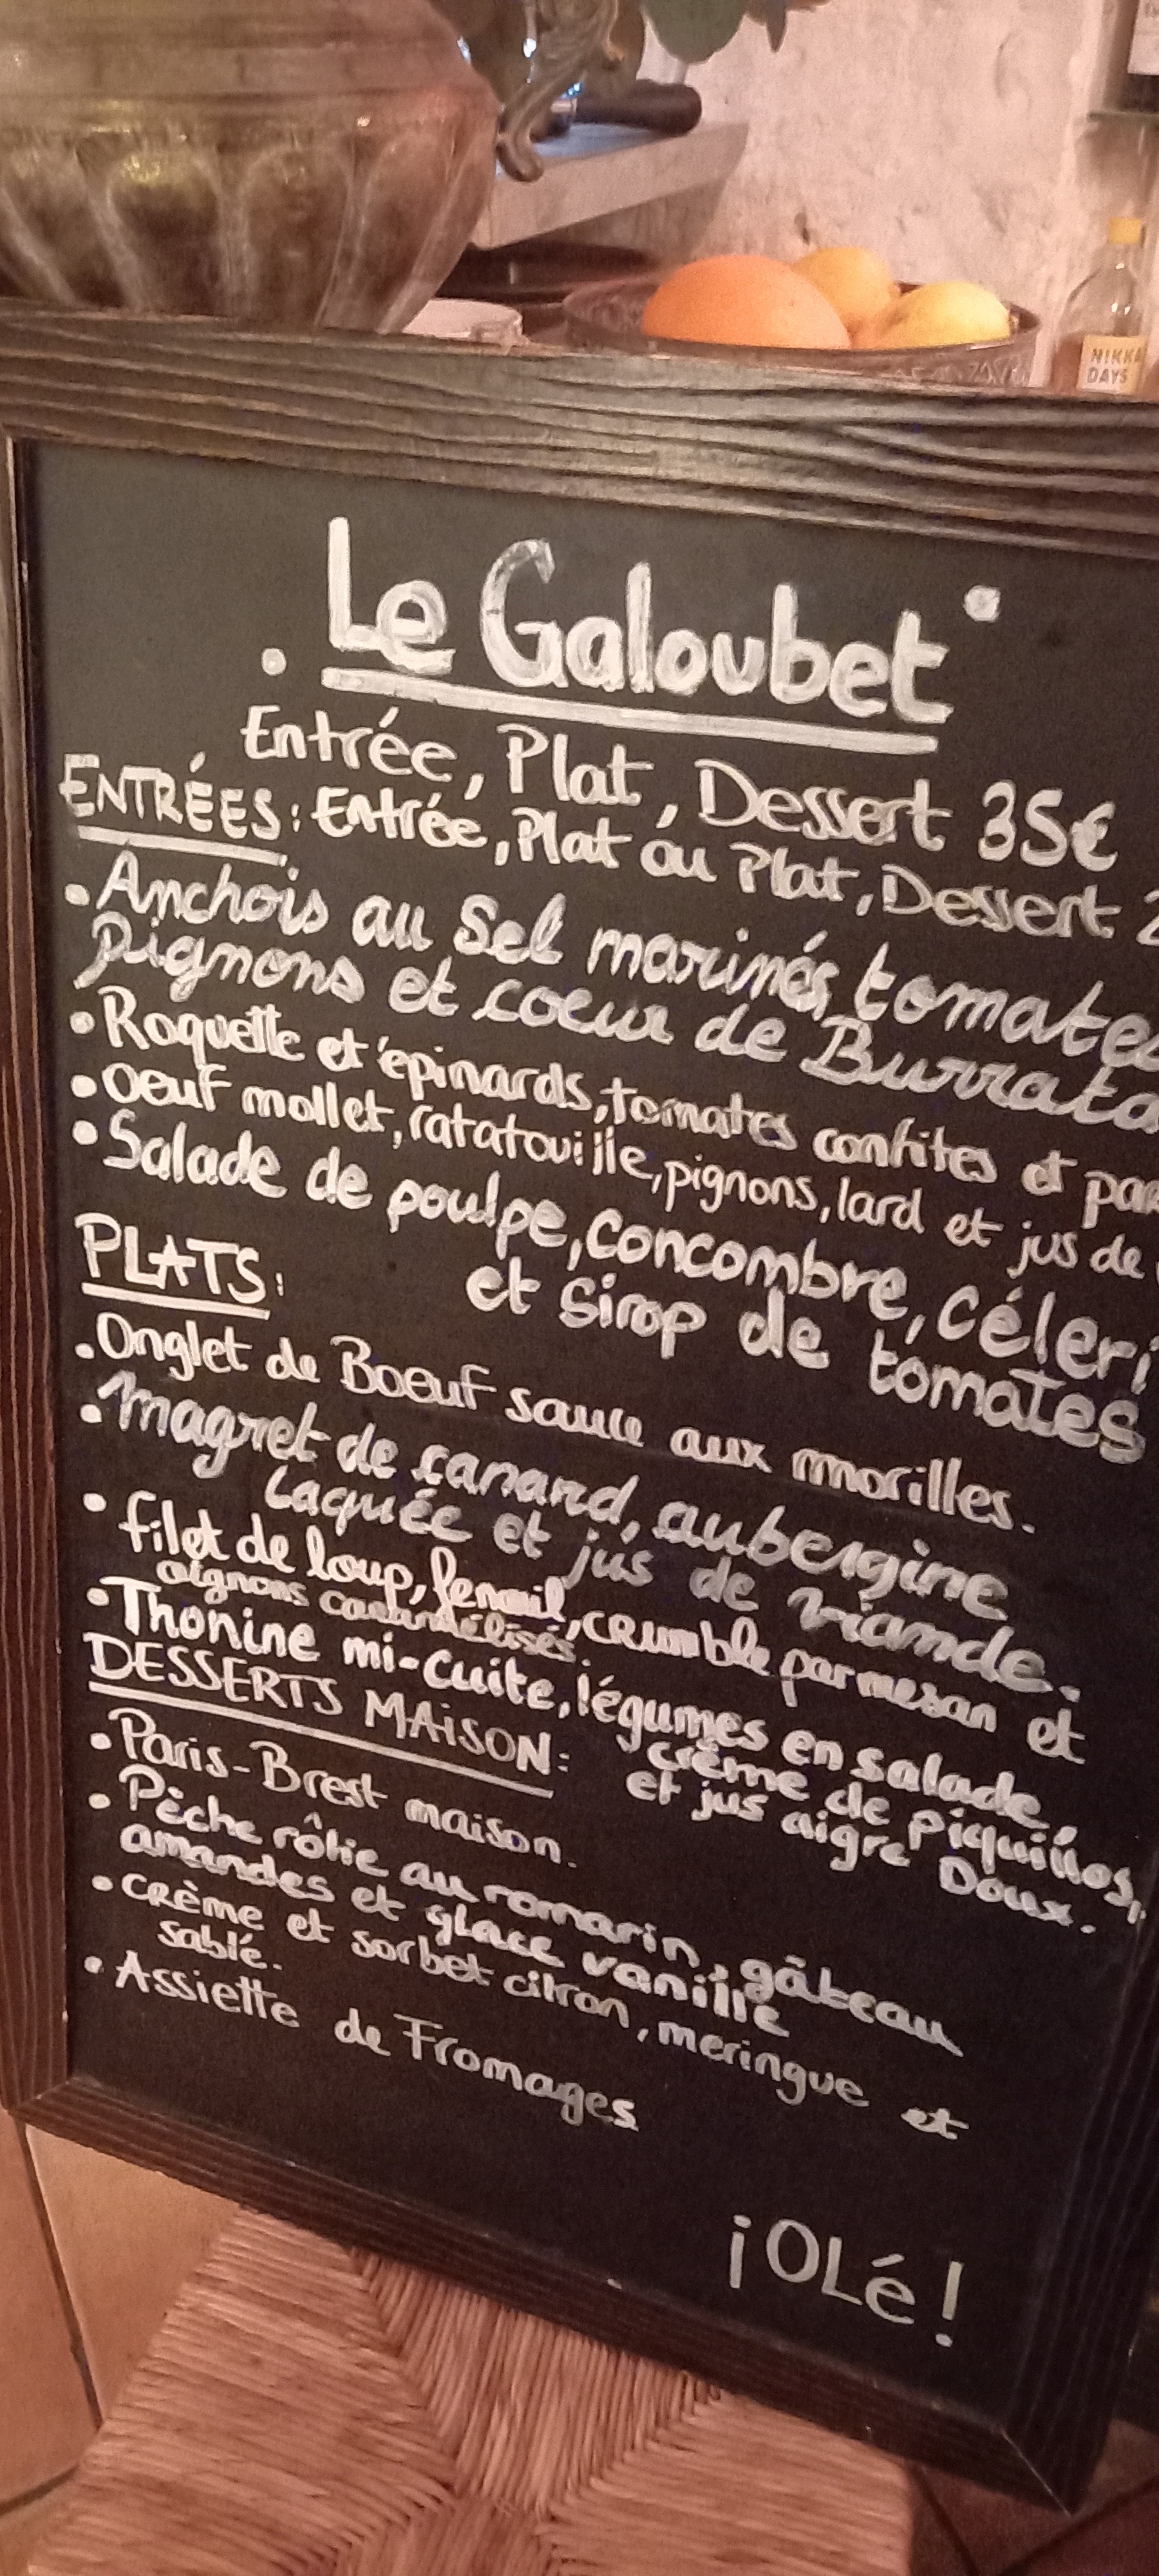 NIKKA
DAYS
. Le Galoubet .
Entrée, Plat, Dessert 35€
ENTRÉES: Entrée, Plat ou Plat, Dessert 2
. Anchois au Sel marinés, tomates
pignons et coeur de Burrata
. Roquette et épinards, tomates confites et par
. Oeuf mollet, ratatouille, pignons, lard et jus de
. Salade de poulpe, concombre, céleri
et sirop de tomates
PLATS:
. Onglet de Boeuf sauce aux morilles.
. Magret de canard, aubergine
Laquée et jus de viande.
. filet de loup, fenouil, crumble parmesan et
oignons caramélisés.
. Thonine mi-cuite, légumes en salade,
crème de piquillos,
et jus aigre Doux.
DESSERTS MAiSON:
. Paris-Brest maison.
. Pêche rôtie au romarin, gâteau
amandes et glace vanille
. crème et sorbet citron, meringue et
sablé.
. Assiette de Fromages
¡OLé!